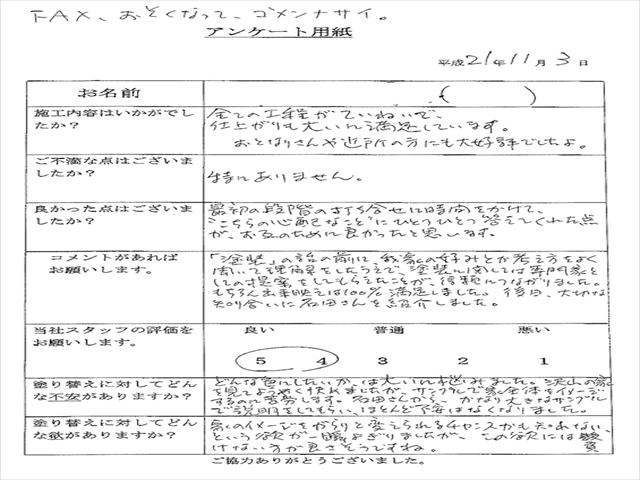 FAX、おそくなって、ゴメンナサイ。
アンケート用紙
平成21年11月3日
お名前 ( )
施工内容はいかがでし
たか?
全ての工程がていねいで、
仕上がりも大いに満足しています。
おとなりさんや近所の方にも大好評でしたよ。
ご不満な点はございま
したか?
特にありません。
良かった点はございま
したか?
最初の段階の打ち合せに時間をかけて、
こちらの心配なことにひとつひとつ答えてくれた点
が、お互のために良かったと思います。
コメントがあれば
お願いします。
「塗装」の話の前に、我家の好みとか考え方をよく
聞いて理解をしたうえで、塗装に関しては専門家と
しての提案をしてもらえたことが、信頼につながりました。
もちろん出来映えは100%満足しました。後日、大切な
知り合いに石田さんを紹介しました。
当社スタッフの評価を
お願いします。
良い 普通 悪い
5 4 3 2 1
塗り替えに対してどん
な不安がありますか?
どんな色にしたいか、は大いに悩みました。沢山の家
を見てようやく決めましたが、サンプルで家全体をイメージ
するのに苦労します。石田さんから、かなり大きなサンプル
で説明をしてもらい、ほとんど不安はなくなりました。
塗り替えに対してどん
な欲がありますか?
家のイメージをがらりと変えられるチャンスかも知れない、
という欲が一瞬よぎりましたが、この欲には
けない方が良さそうですね。
ご協力ありがとうございました。